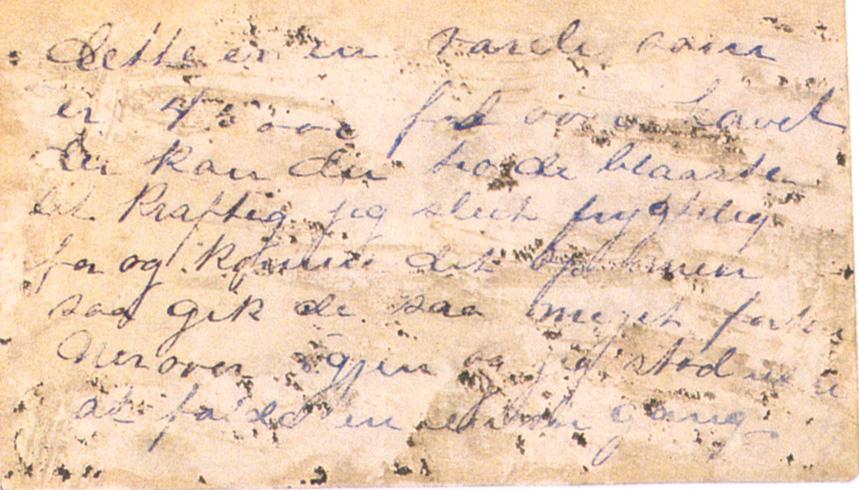 dette er en varde som
er 4000 fod over Havet
der kan du tro de blaaste
det kraftig jeg sleet frygtelig
for og komme dit op men
saa gik de saa meget fortere
Nerover igjen og jeg stod
at falde en gang